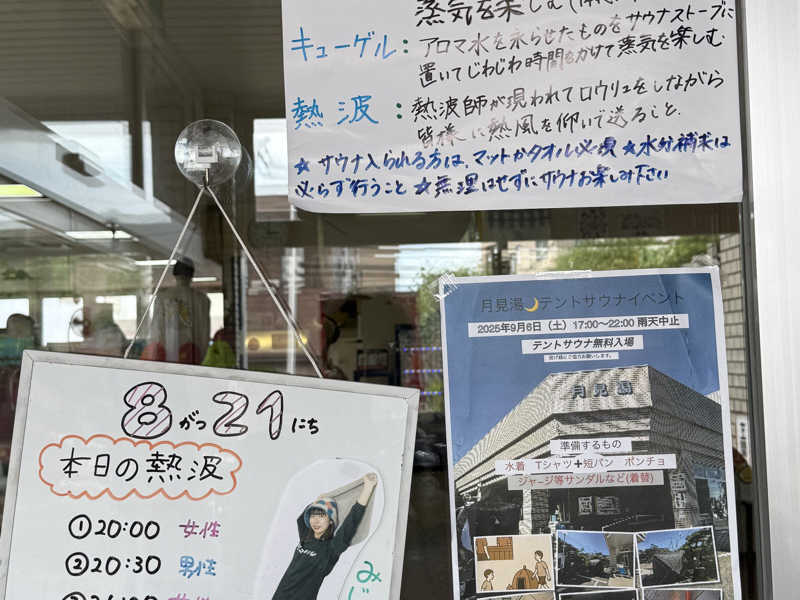 蒸気を楽しむ
キューゲル：アロマ水を氷らせたものをサウナストーブに
置いてじわじわ時間をかけて蒸気を楽しむ
熱波：熱波師が現われてロウリュをしながら
皆様に熱風を仰いで送ること.
☆サウナ入られる方は、マットかタオル必須☆水分補求は
必らず行うこと☆無理はせずにサウナお楽しみ下さい
月見湯🌙テントサウナイベント
2025年9月6日（土）17:00〜22:00 雨天中止
テントサウナ無料入場
月見湯
準備するもの
水着 Tシャツ+短パン ポンチョ
ジャージ等サンダルなど(着替)
8がつ21にち
本日の熱波
①20:00 女性
②20:30 男性
女性